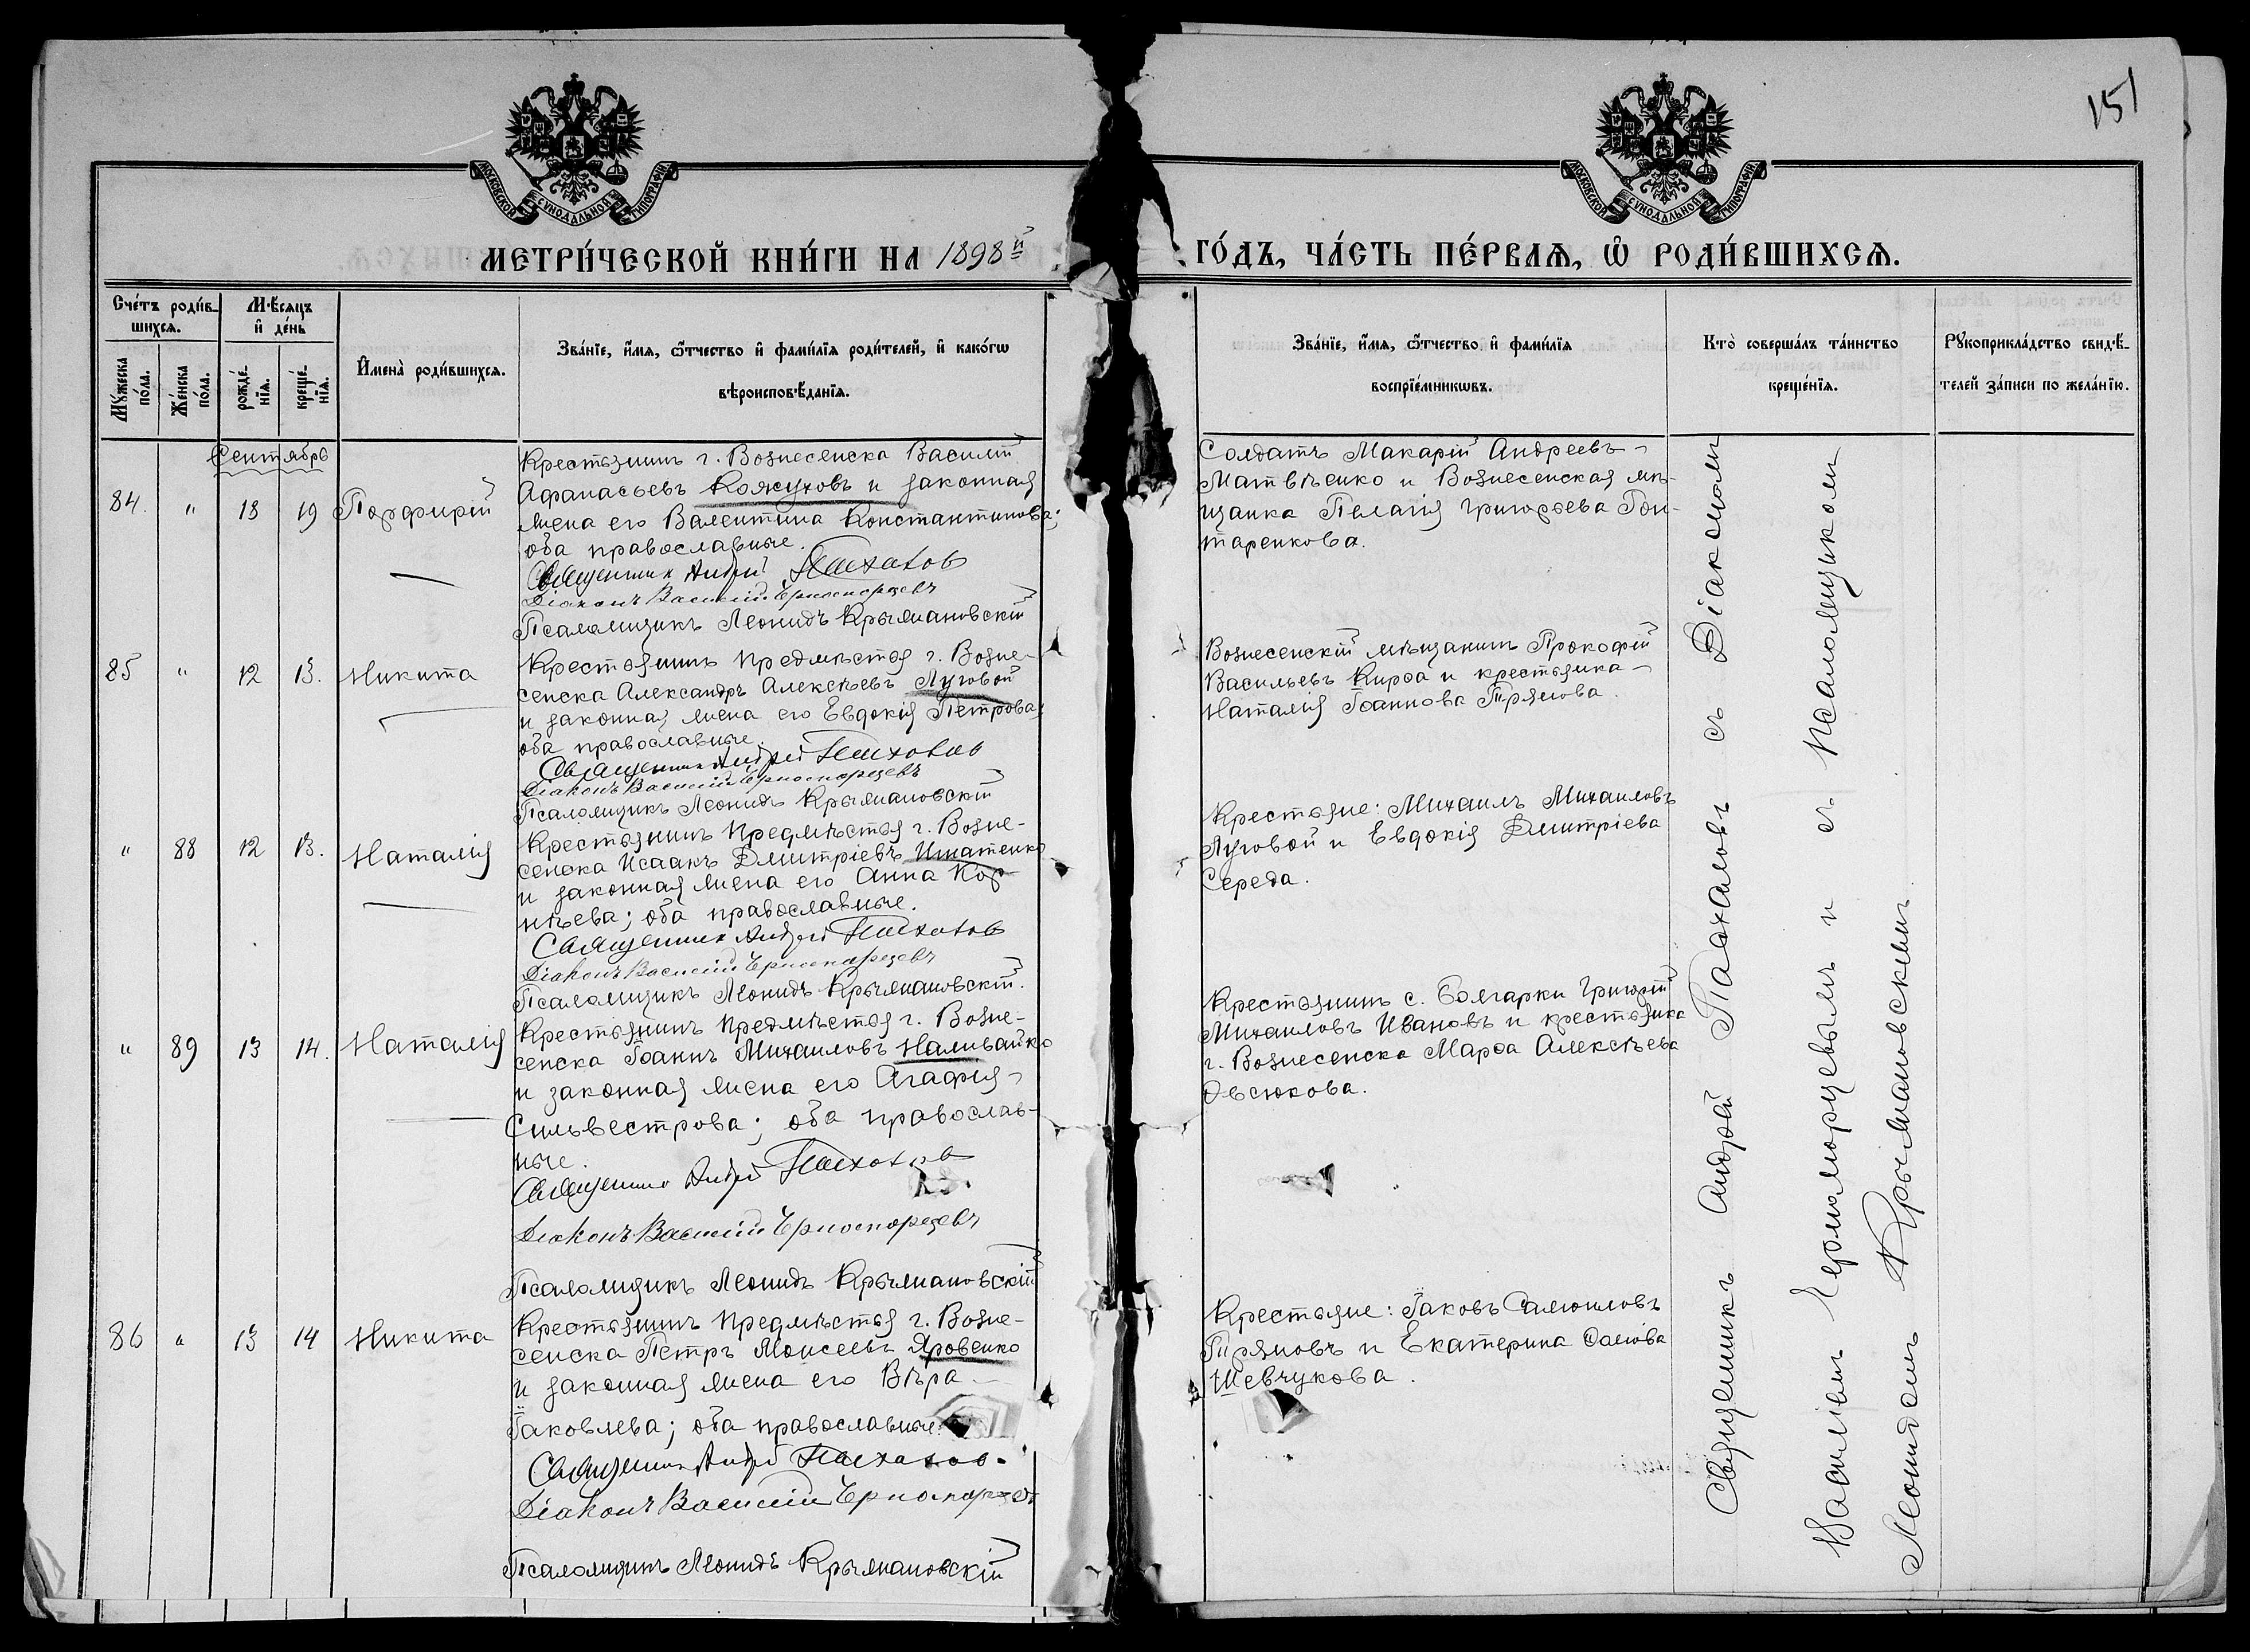 151
МОСКОВСКОЙ СУНОДАЛЬНОЙ ТИПОГРАФІИ
МОСКОВСКОЙ СУНОДАЛЬНОЙ ТИПОГРАФІИ
МЕТРИ́ЧЕСКОЙ КНИ́ГИ НА 1898й
ГО́ДЪ, ЧА́СТЬ ПЕ́РВАѦ, Ѡ РОДИ́ВШИХСѦ.
Сче́тъ роди́в-
шихсѧ.
Мꙋ́жеска
по́ла.
Же́нска
по́ла.
Мѣ́сѧцъ
и де́нь
рожде́-
нїѧ.
креще́-
нїѧ.
Имена̀ роди́вшихсѧ.
Зва́нїе, и́мѧ, ѻ́тчество и фами́лїѧ роди́телей, и како́гѡ
вѣроисповѣ́данїѧ.
Зва́нїе, и́мѧ, ѻ́тчество и фами́лїѧ
воспрїе́мникѡвъ.
Кто̀ соверша́лъ та́инство
креще́нїѧ.
Рꙋкоприкла́дство свидѣ́-
телей за́писи по жела́нїю.
Сентябрь
84. " 18 19 Порфирій
Крестьянинъ г. Вознесенска Василій
Афанасьевъ Кожуховъ и законная
жена его Валентина Константинова;
оба православные.
Священник Андрей Пахалов
Діаконъ Василій
Псаломщикъ Леонидъ Крыжановскій
Солдатъ Макарій Андреевъ
Матвѣенко и Вознесенская мѣ-
щанка Пелагія Григорьева Гон-
таренкова.
85 " 12 13. Никита
Крестьянинъ предмѣстья г. Возне-
сенска Александръ Алексѣевъ Луговой
и законная жена его Евдокія Петрова;
оба православные.
Священник Андрей Пахалов
Діаконъ Василій
Псаломщикъ Леонидъ Крыжановскій
Вознесенскій мѣщанинъ Прокофій
Васильевъ Кирса и крестьянка
Наталія Іоаннова
" 88 12 13. Наталія
Крестьянинъ предмѣстья г. Возне-
сенска Исаакъ Дмитріевъ Игнатенко
и законная жена его Анна Кор-
нѣева; оба православные.
Священник Андрей Пахалов
Діаконъ Василій
Псаломщикъ Леонидъ Крыжановскій.
Крестьяне: Михаилъ Михаиловъ
Луговой и Евдокія Дмитріева
Середа.
" 89 13 14. Наталія
Крестьянинъ предмѣстья г. Возне-
сенска Іоаннъ Михаиловъ Наливайко
и законная жена его Агафія
Сильвестрова; оба православ-
ные.
Священник Андрей Пахалов
Діаконъ Василій
Псаломщикъ Леонидъ Крыжановскій
Крестьянинъ с. Болгарки Григорій
Михаиловъ Ивановъ и крестьянка
г. Вознесенска Марфа Алексѣева
Овсюкова.
86 " 13 14 Никита
Крестьянинъ предмѣстья г. Возне-
сенска Петръ Моисеевъ Яровенко
и законная жена его Вѣра
Іаковлева; оба православные.
Священник Андрей Пахалов.
Діаконъ Василій
Псаломщикъ Леонидъ Крыжановскій
Крестьяне: Іаковъ Самоиловъ
и Екатерина
Шевчукова.
Священникъ Андрей Пахаловъ съ Діакономъ
Василіемъ и съ Псаломщикомъ
Леонидомъ Крыжановскимъ.